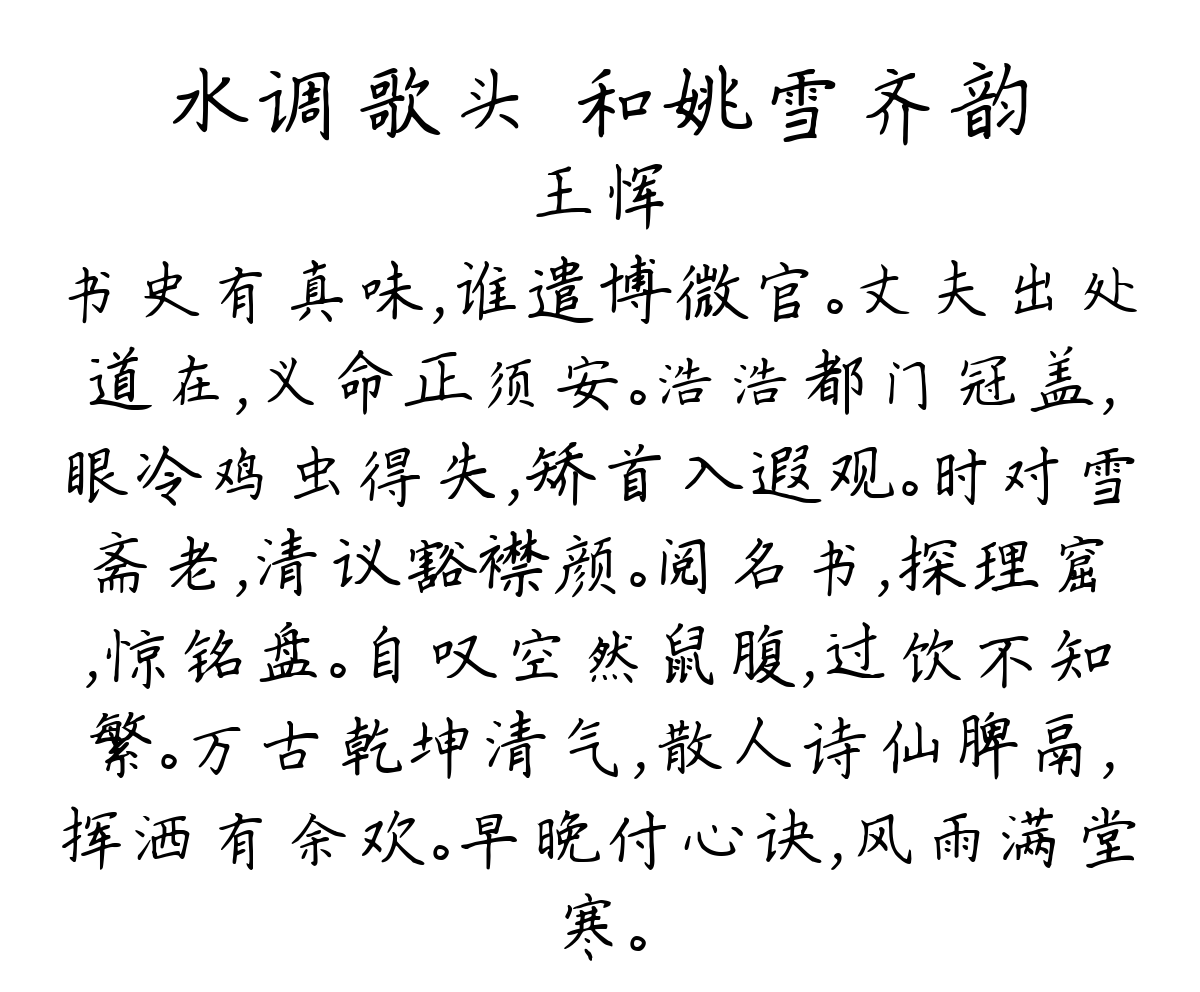 水调歌头 和姚雪齐韵
王恽
书史有真味,谁遣博微官。丈夫出处
道在,义命正须安。浩浩都门冠盖,
眼冷鸡虫得失,矫首入遐观。时对雪
斋老,清议豁襟颜。阅名书,探理窟
,惊铭盘。自叹空然鼠腹,过饮不知
繁。万古乾坤清气,散人诗仙脾鬲,
挥洒有余欢。早晚付心诀,风雨满堂
寒。